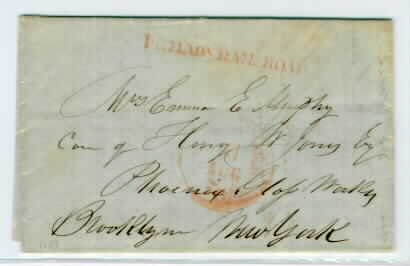 RAIL ROAD
Mrs Emma E Murphy
Care of Henry St Jones Esq
Phoenix Glass Works
Brooklyn New York